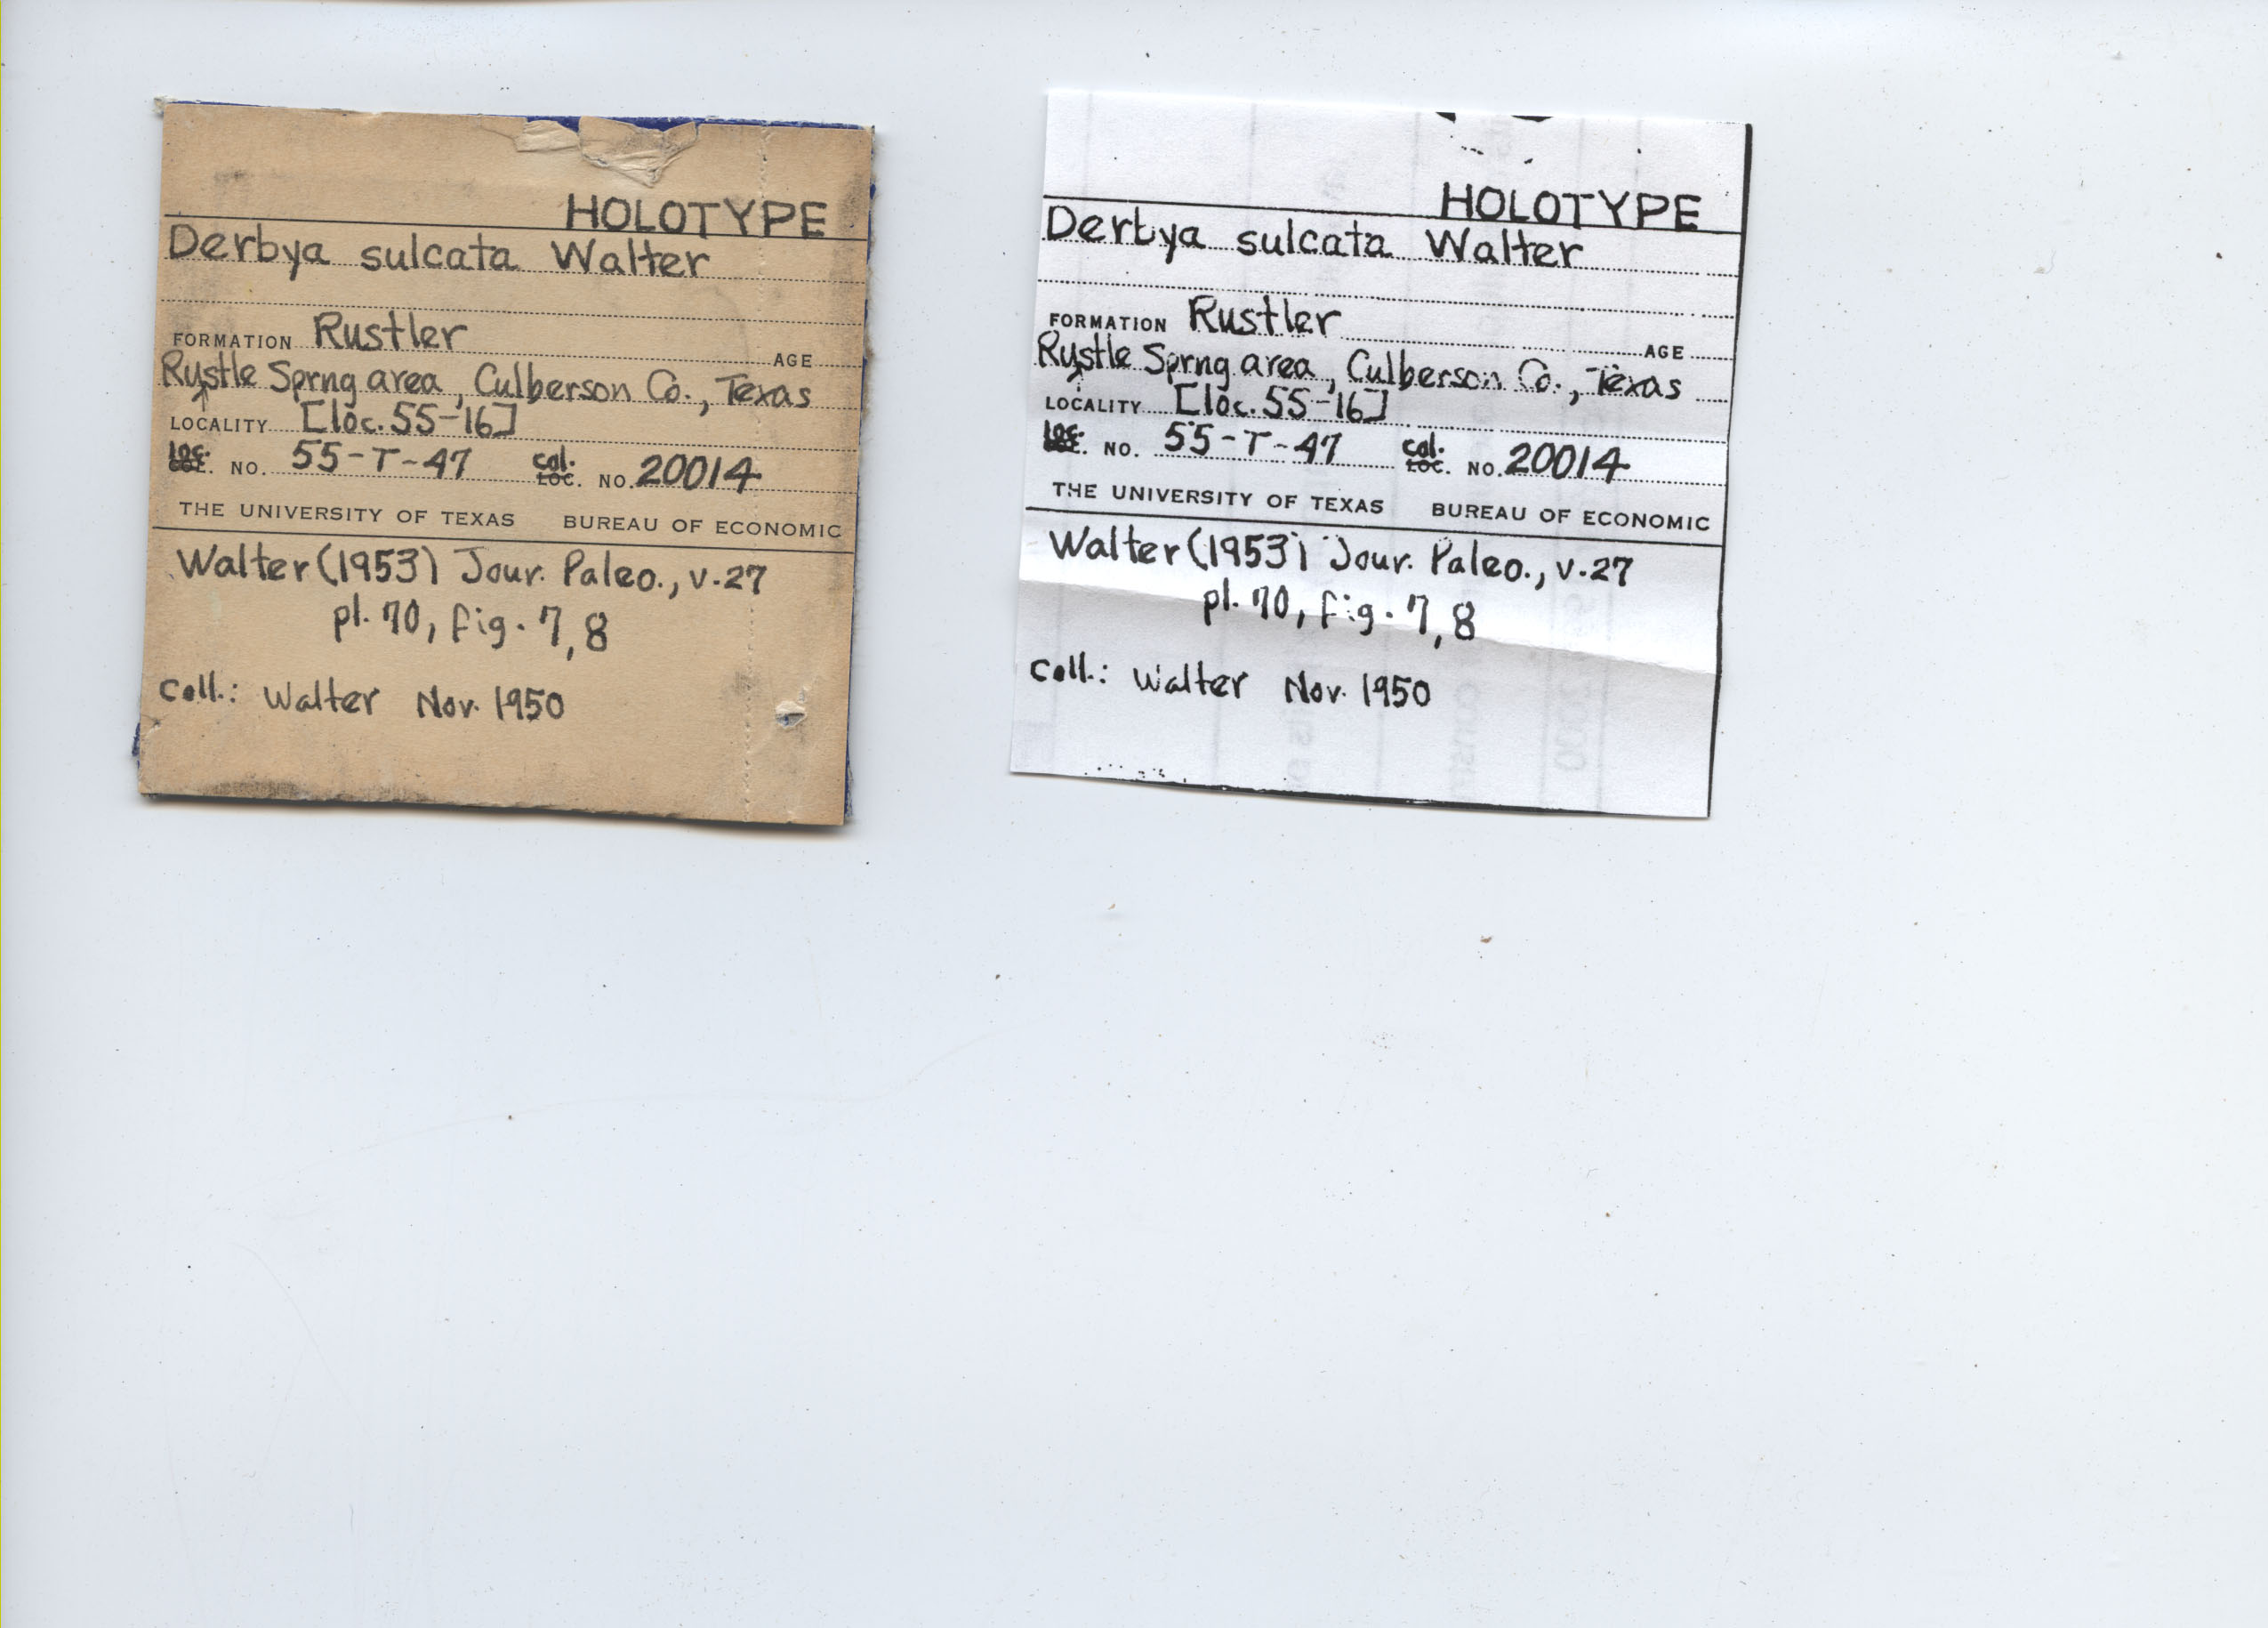 HOLOTYPE
Derbya sulcata Walter
FORMATION Rustler AGE
Rustle Sprng area, Culberson Co., Texas
LOCALITY [loc. 55-16]
loc. NO. 55-T-47 col. LOC. NO. 20014
THE UNIVERSITY OF TEXAS BUREAU OF ECONOMIC
Walter (1953) Jour. Paleo., v.27
pl. 70, fig. 7, 8
coll.: Walter Nov. 1950
HOLOTYPE
Derbya sulcata Walter
FORMATION Rustler AGE
Rustle Sprng area, Culberson Co., Texas
LOCALITY [loc. 55-16]
loc. NO. 55-T-47 col. LOC. NO. 20014
THE UNIVERSITY OF TEXAS BUREAU OF ECONOMIC
Walter (1953) Jour. Paleo., v.27
pl. 70, fig. 7, 8
coll.: Walter Nov. 1950